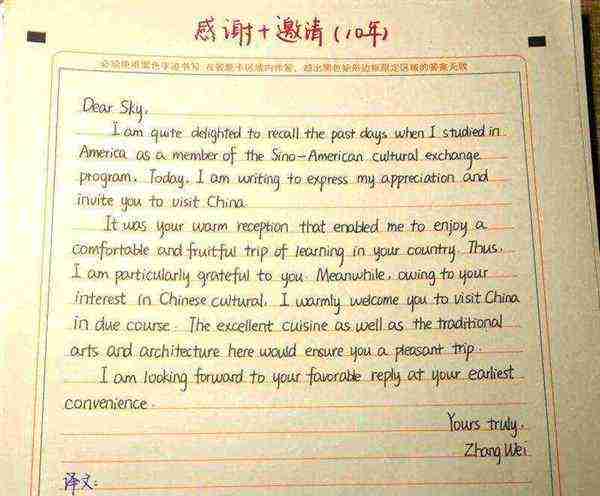 感谢+邀请(10年)
必须使用黑色字迹书写 在答题卡区域内作答，超出黑色矩形边框限定区域的答案无效
Dear Sky,
I am quite delighted to recall the past days when I studied in
America as a member of the Sino-American cultural exchange
program. Today, I am writing to express my appreciation and
invite you to visit China
It was your warm reception that enabled me to enjoy a
comfortable and fruitful trip of learning in your country. Thus,
I am particularly grateful to you. Meanwhile, owing to your
interest in Chinese cultural, I warmly welcome you to visit China
in due course. The excellent cuisine as well as the traditional
arts and architecture here would ensure you a pleasant trip.
I am looking forward to your favorable reply at your earliest
convenience.
Yours truly,
Zhang Wei
译文: